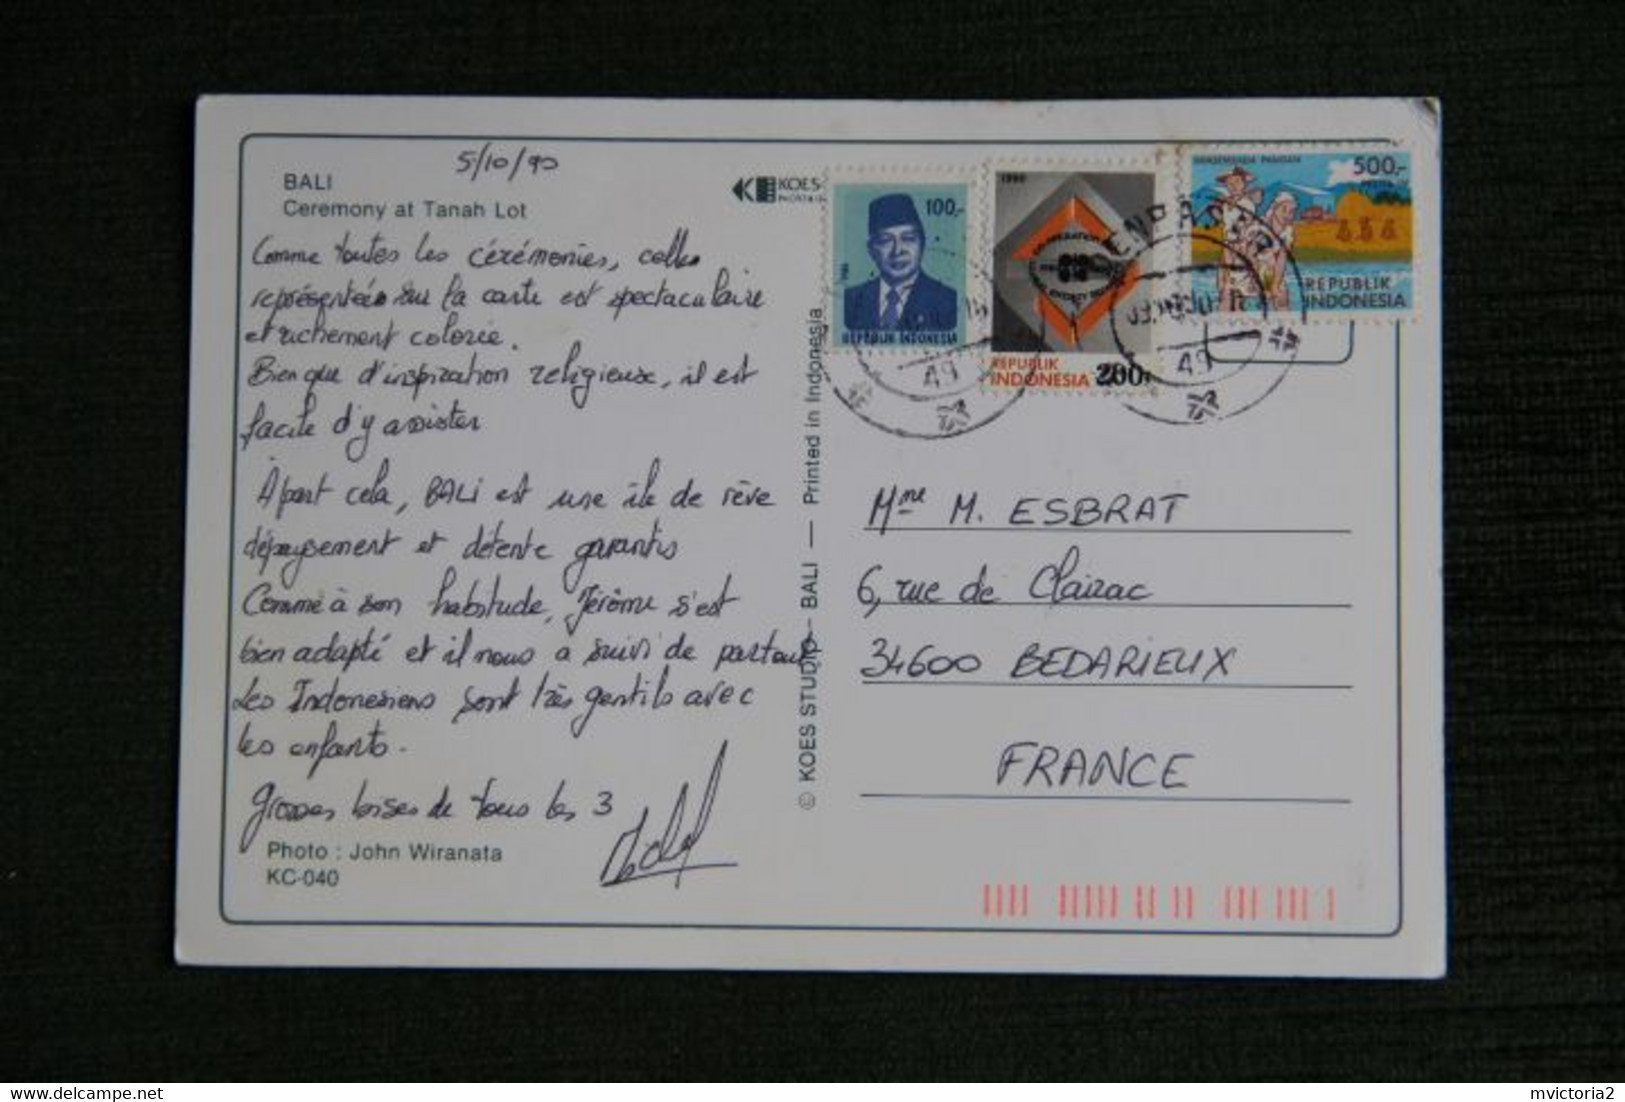 5/10/90
BALI
Ceremony at Tanah Lot
KOES
Comme toutes les cérémonies, celles
représentées sur la carte est spectaculaire
et richement colorée.
Bien que d'inspiration religieuse, il est
facile d'y assister
A part cela, BALI est une île de rêve
dépaysement et détente garantis
Comme à son habitude, Jérôme s'est
bien adapté et il nous a suivi de partout
Les Indonesiens sont très gentils avec
les enfants.
Grosses bises de tous les 3
Photo : John Wiranata
KC-040
© KOES STUDIO — BALI — Printed in Indonesia
100,-
REPUBLIK INDONESIA
1990
REPUBLIK
INDONESIA 200,-
500,-
REPUBLIK
INDONESIA
DENPASAR
49
49
Mme M. ESBRAT
6, rue de Clairac
34600 BEDARIEUX
FRANCE
mvictoria2